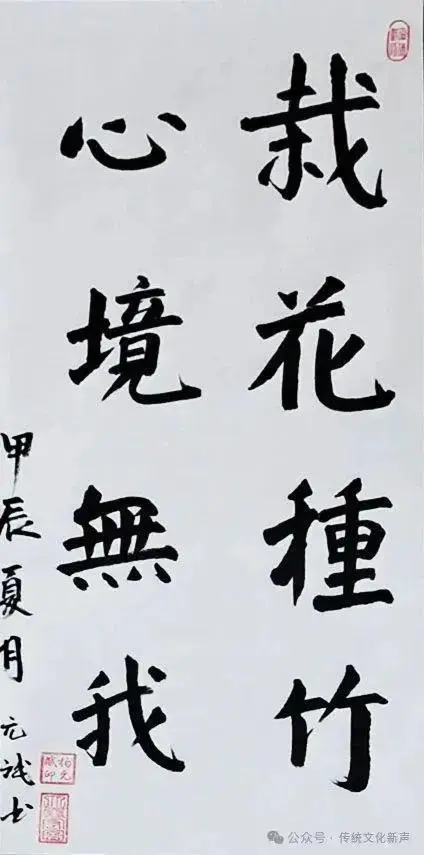 栽花種竹
心境無我
甲辰夏月元誠书
公众号·传统文化新声